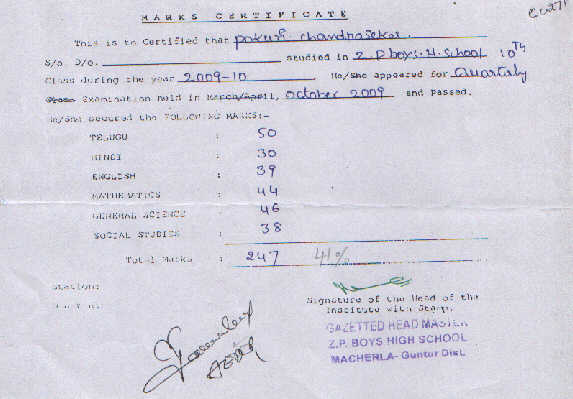 MARKS CERTIFICATE
This is to Certified that pokuri chandrasekar
S/o. D/o. studied in Z.P boys.H.School 10TH
Class during the year 2009-10 He/She appeared for Quarterly
Examination held in March/April, October 2009 and Passed.
He/She secured the FOLLOWING MARKS:-
TELUGU : 50
HINDI : 30
ENGLISH : 39
MATHEMATICS : 44
GENERAL SCIENCE : 46
SOCIAL STUDIES : 38
Total Marks : 247 41%
Station:
Signature of the Head of the
Institute with Stamp.
GAZETTED HEAD MASTER
Z.P. BOYS HIGH SCHOOL
MACHERLA- Guntur Dist.